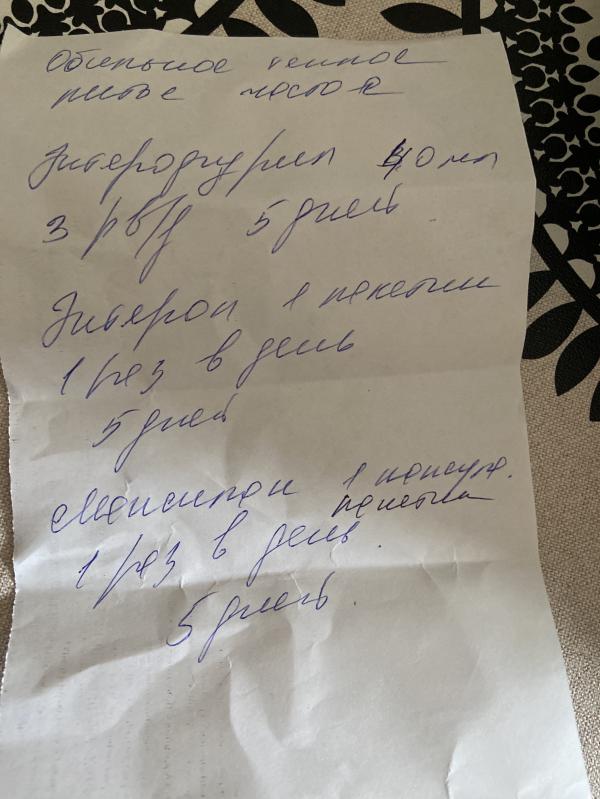 Обильное теплое
питье часто
Энтерофурил 40 мл
3 р/в/д 5 дней.
Энтерол 1 пакетик
1 раз в день
5 дней
Максилак 1 капсул.
пакетик
1 раз в день.
5 дней.